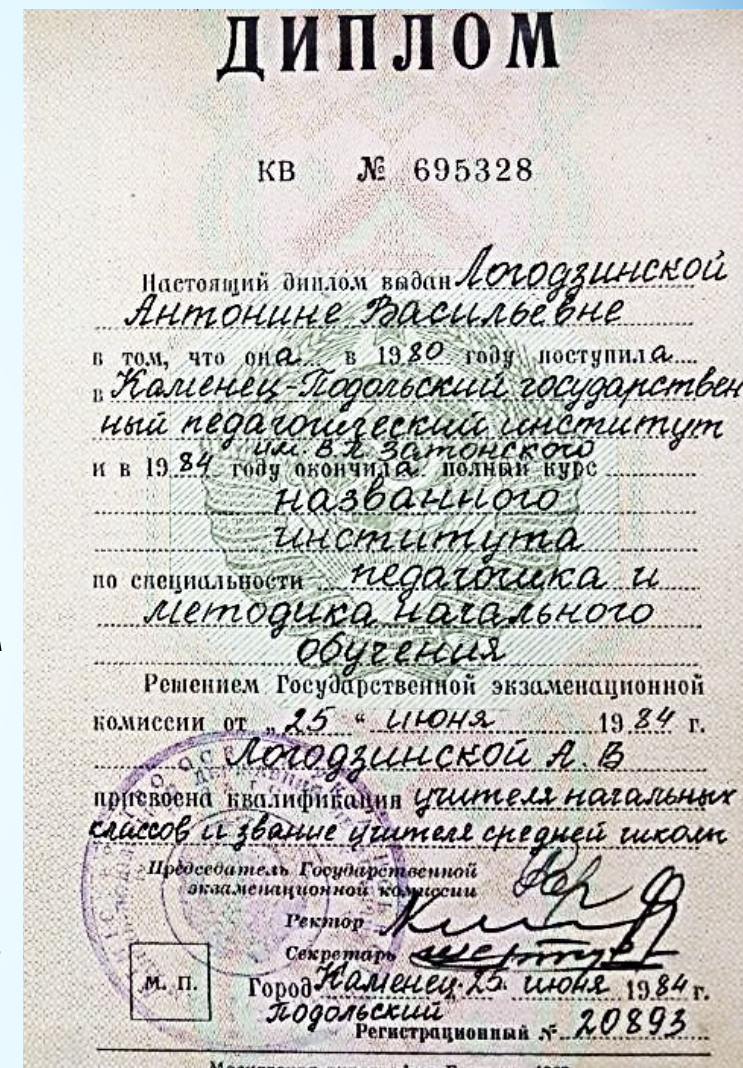 ДИПЛОМ
КВ № 695328
Настоящий диплом выдан Логодзинской
Антонине Васильевне
в том, что она в 1980 году поступила
в Каменец-Подольский государствен
ный педагогический институт
им. В.П. Затонского
и в 1984 году окончила полный курс
названного
института
по специальности педагогика и
методика начального
обучения
Решением Государственной экзаменационной
комиссии от „25“ июня 1984 г.
Логодзинской А. В
присвоена квалификация учителя начальных
классов и звание учителя средней школы
Председатель Государственной
экзаменационной комиссии
Ректор
Секретарь
М. П.
Город Каменец- 25 июня 1984 г.
Подольский
Регистрационный № 20893